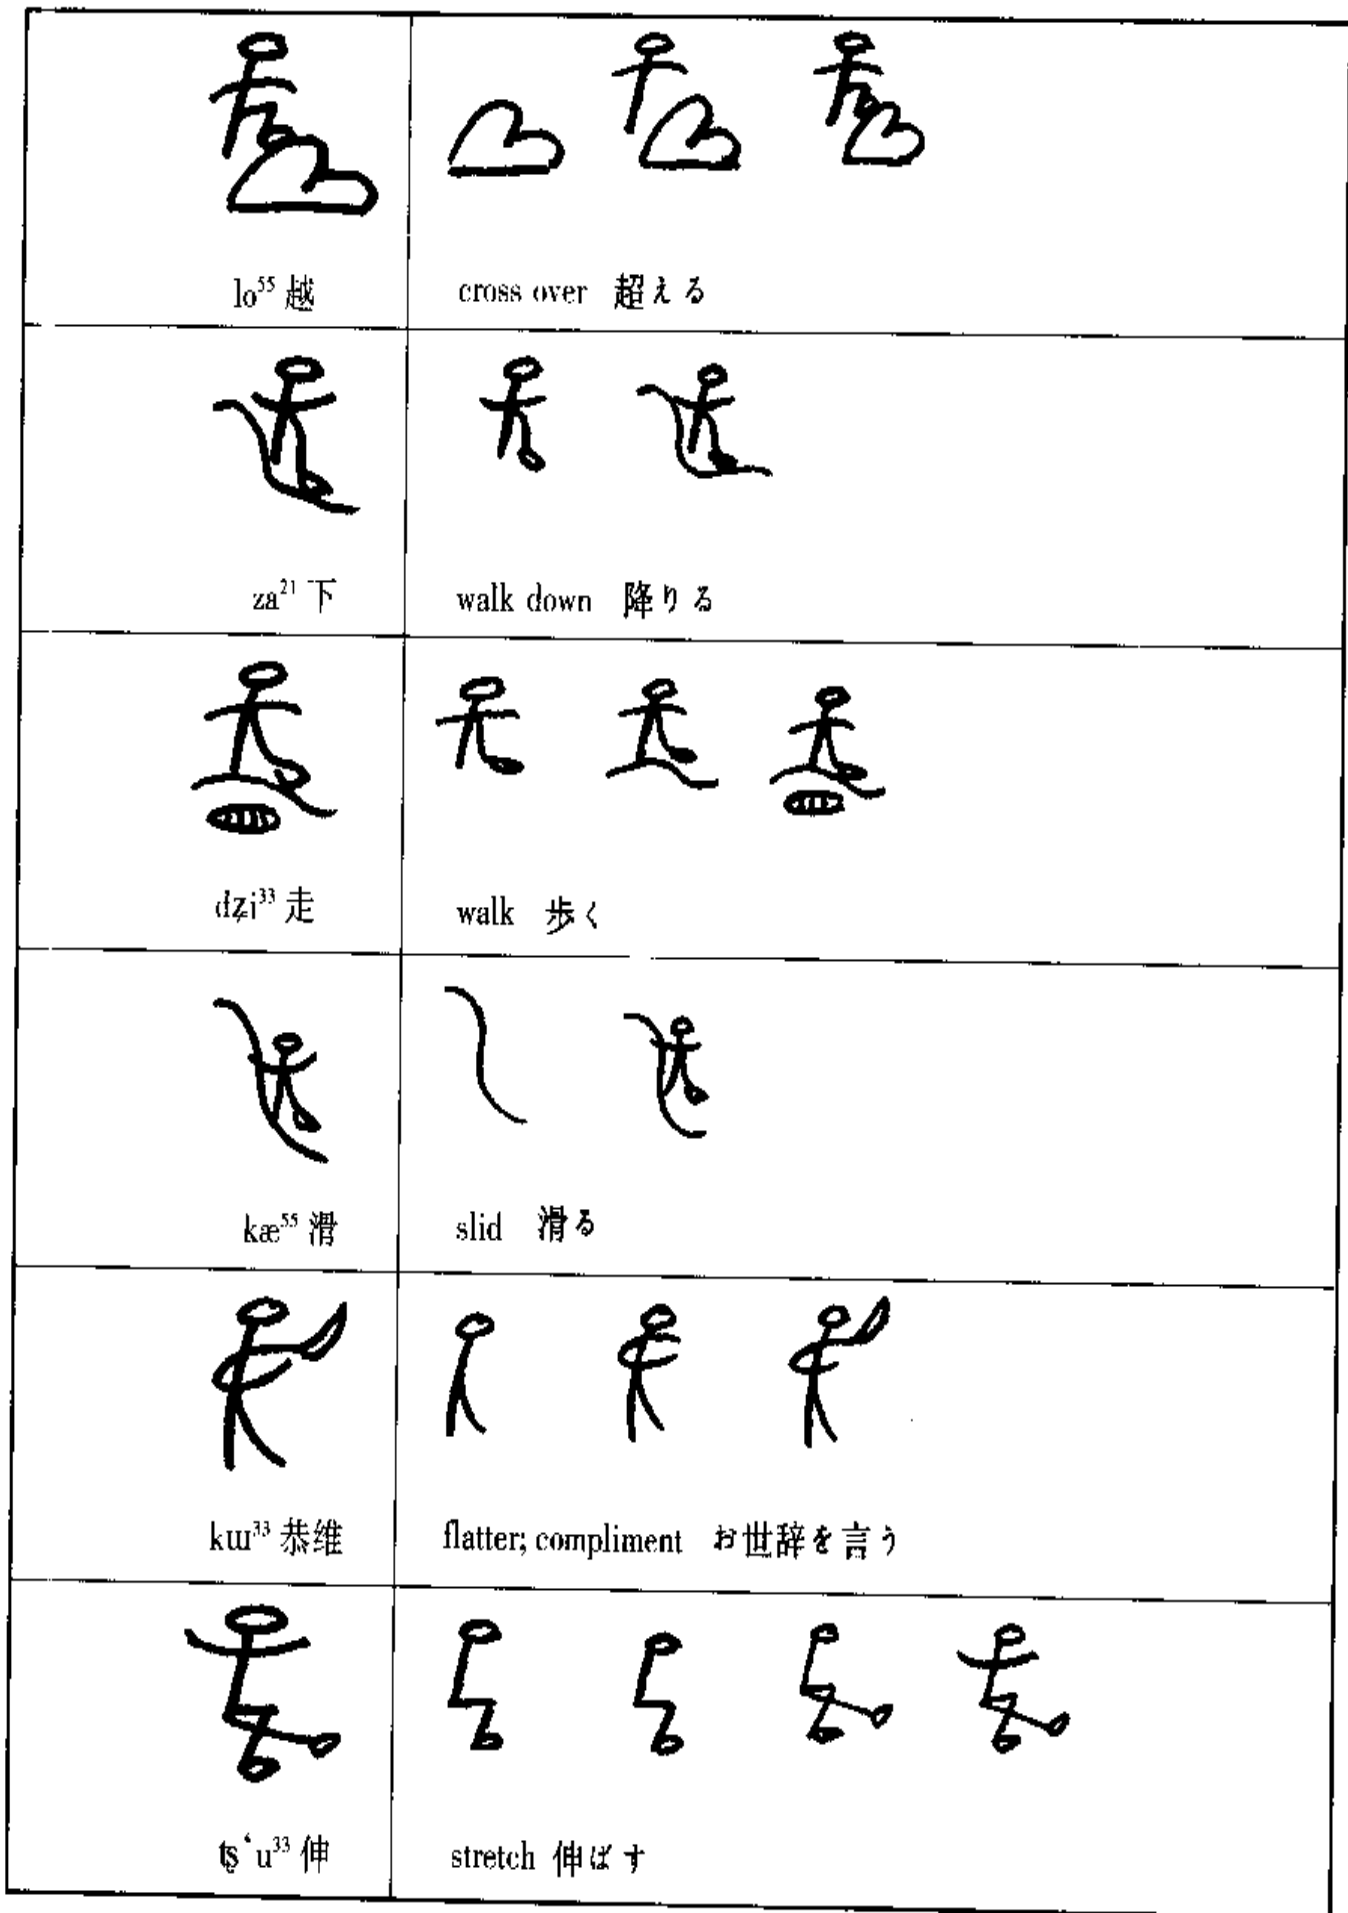 lo⁵⁵ 越 cross over 超える
za²¹ 下 walk down 降りる
dʐi³³ 走 walk 歩く
kæ⁵⁵ 滑 slid 滑る
kɯ³³ 恭维 flatter; compliment お世辞を言う
tʂ‘u³³ 伸 stretch 伸ばす